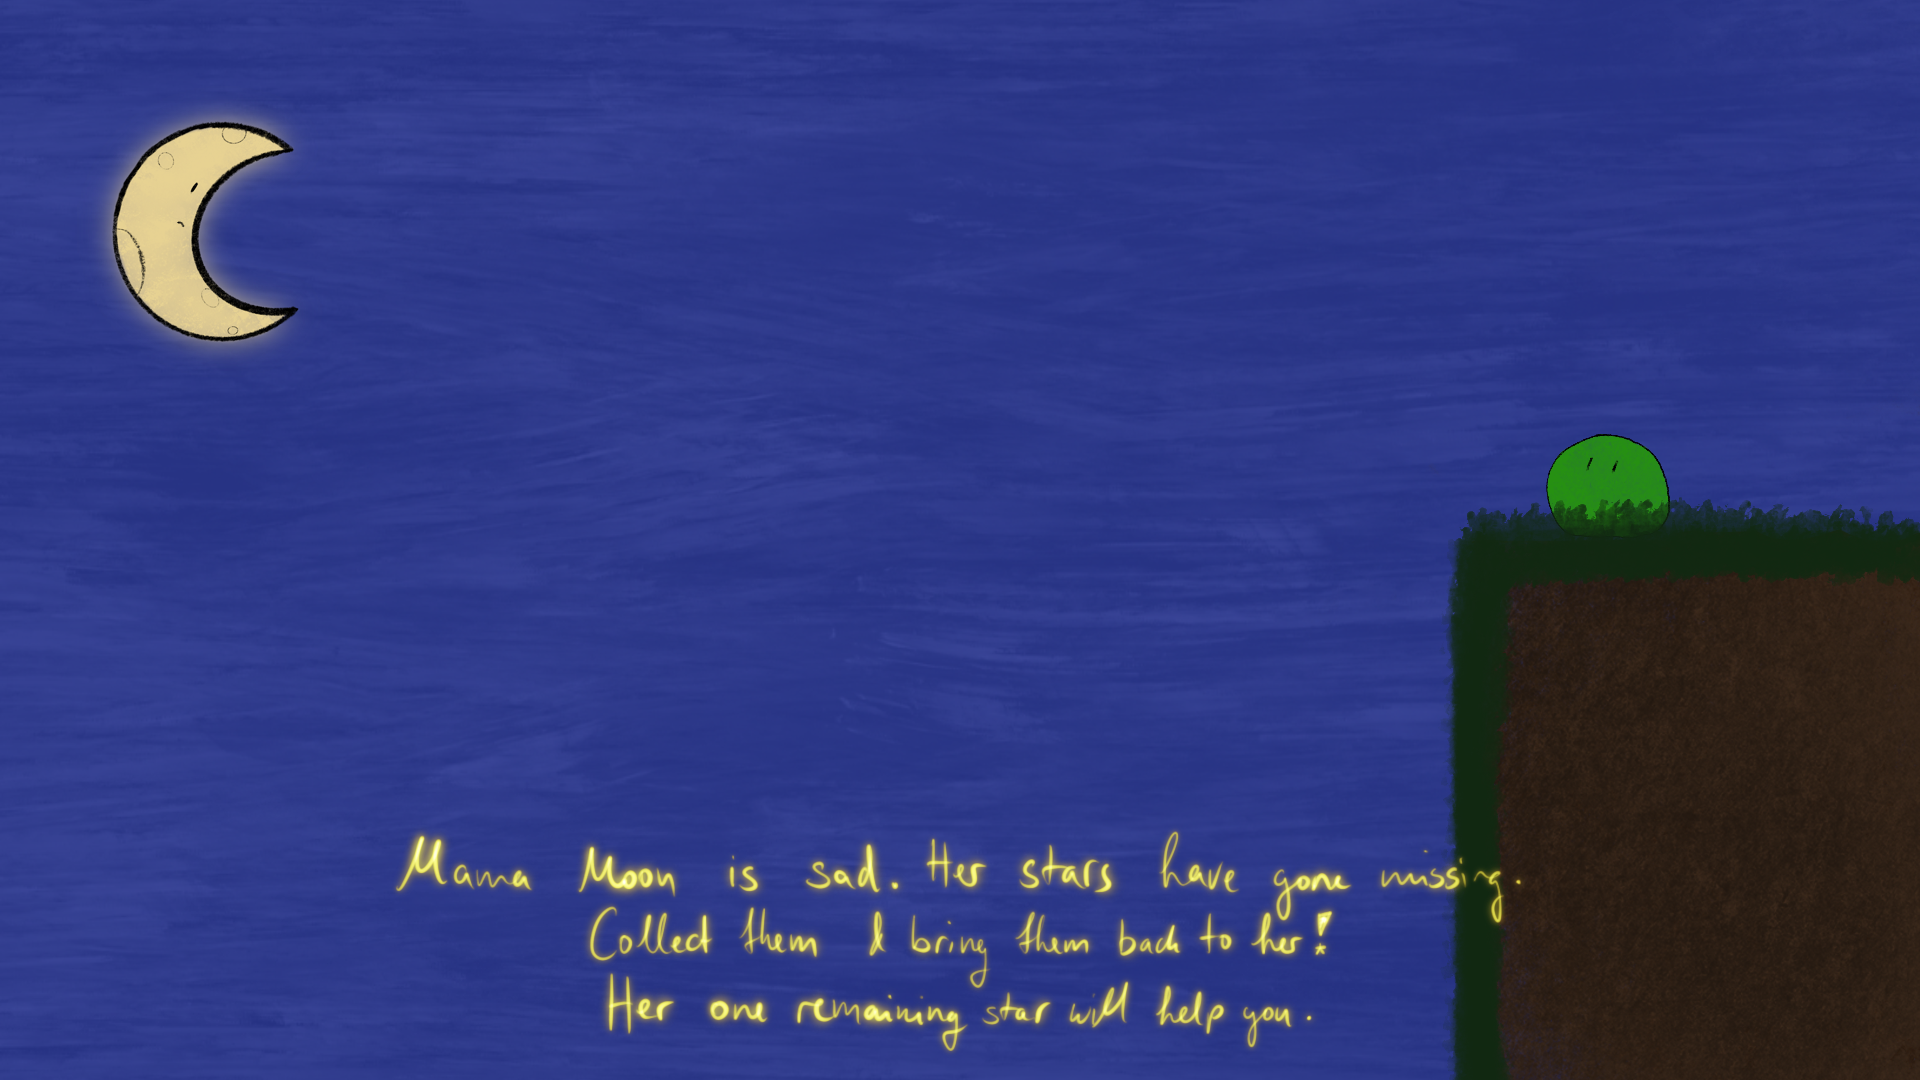 Mama Moon is sad. Her stars have gone missing.
Collect them & bring them back to her!
Her one remaining star will help you.